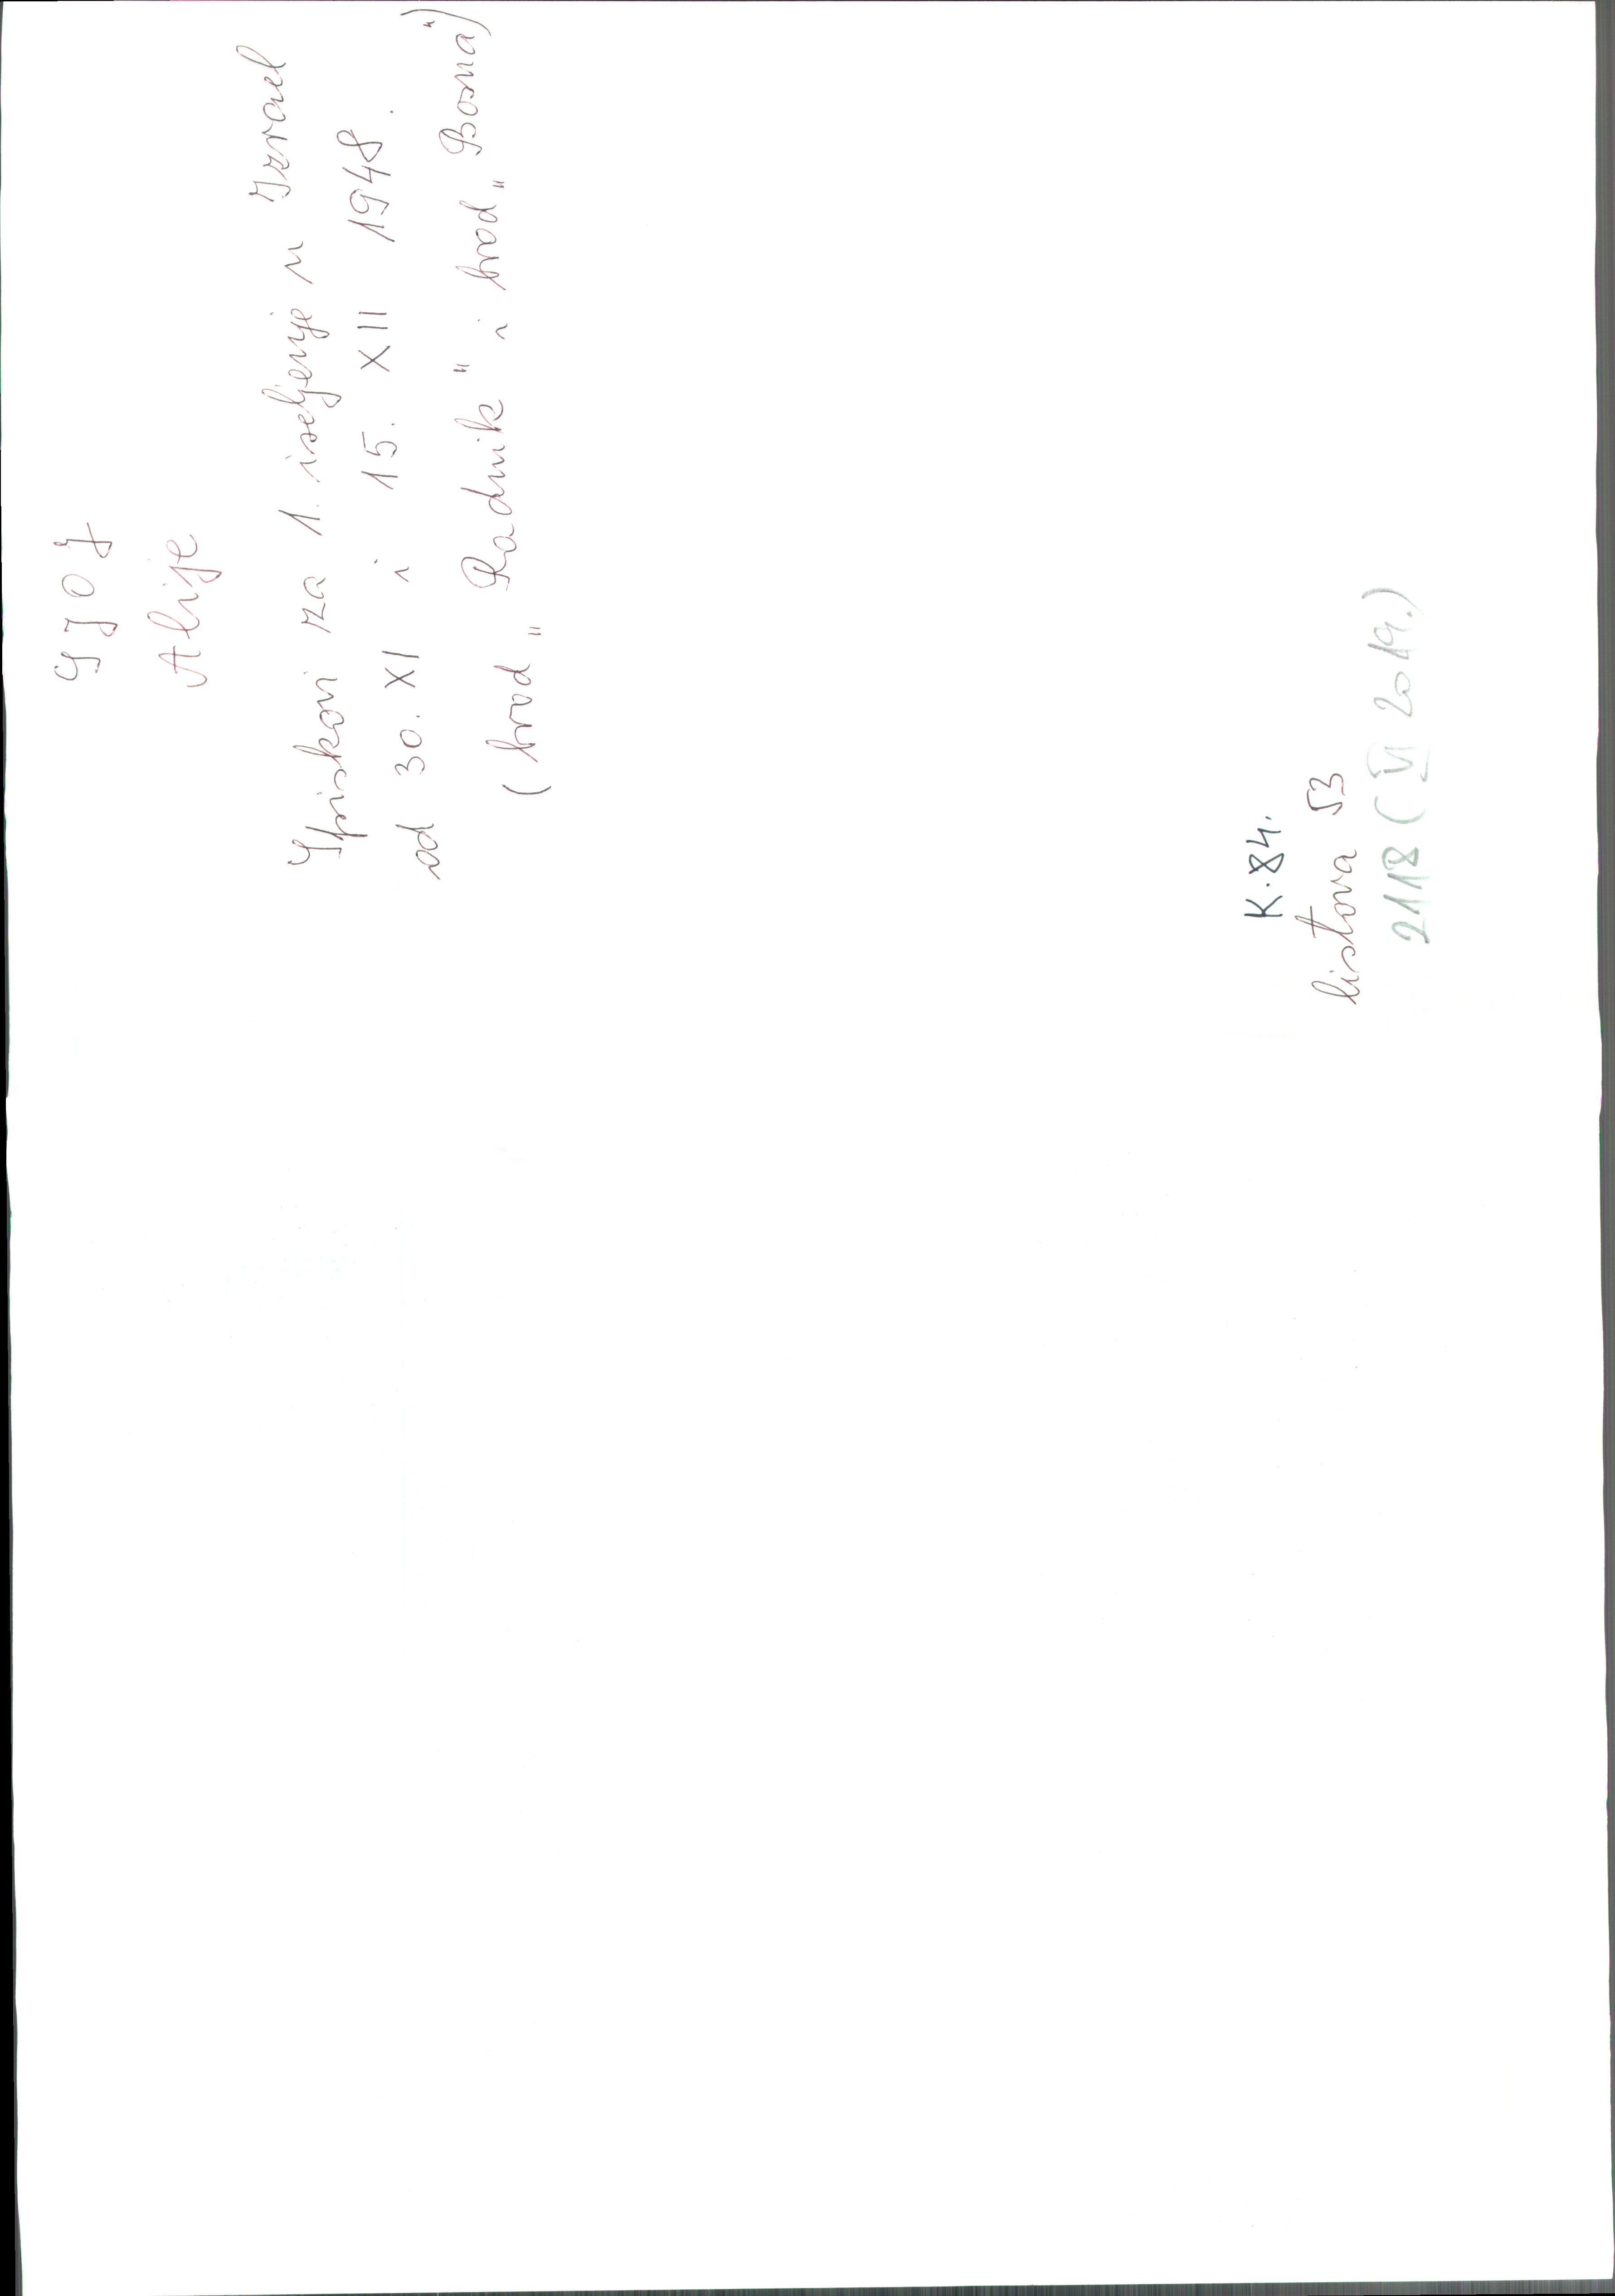 SJOJ
Alije
Spiskovi za 1. iseljenje u Izrael
od 30. XI i 15. XII 1948.
(brod "Radnik" i brod "Bosna")
K.84.
listova 53
2118 (VI 2019.)